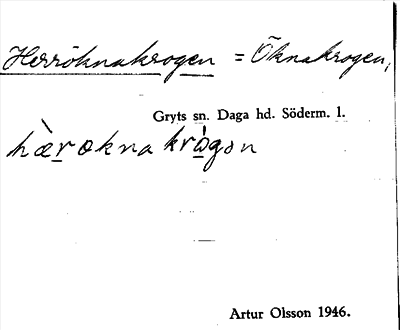 Herröknakrogen = Öknakrogen,
Gryts sn. Daga hd. Söderm. l.
hæ̀røkna krå̀gən
Artur Olsson 1946.